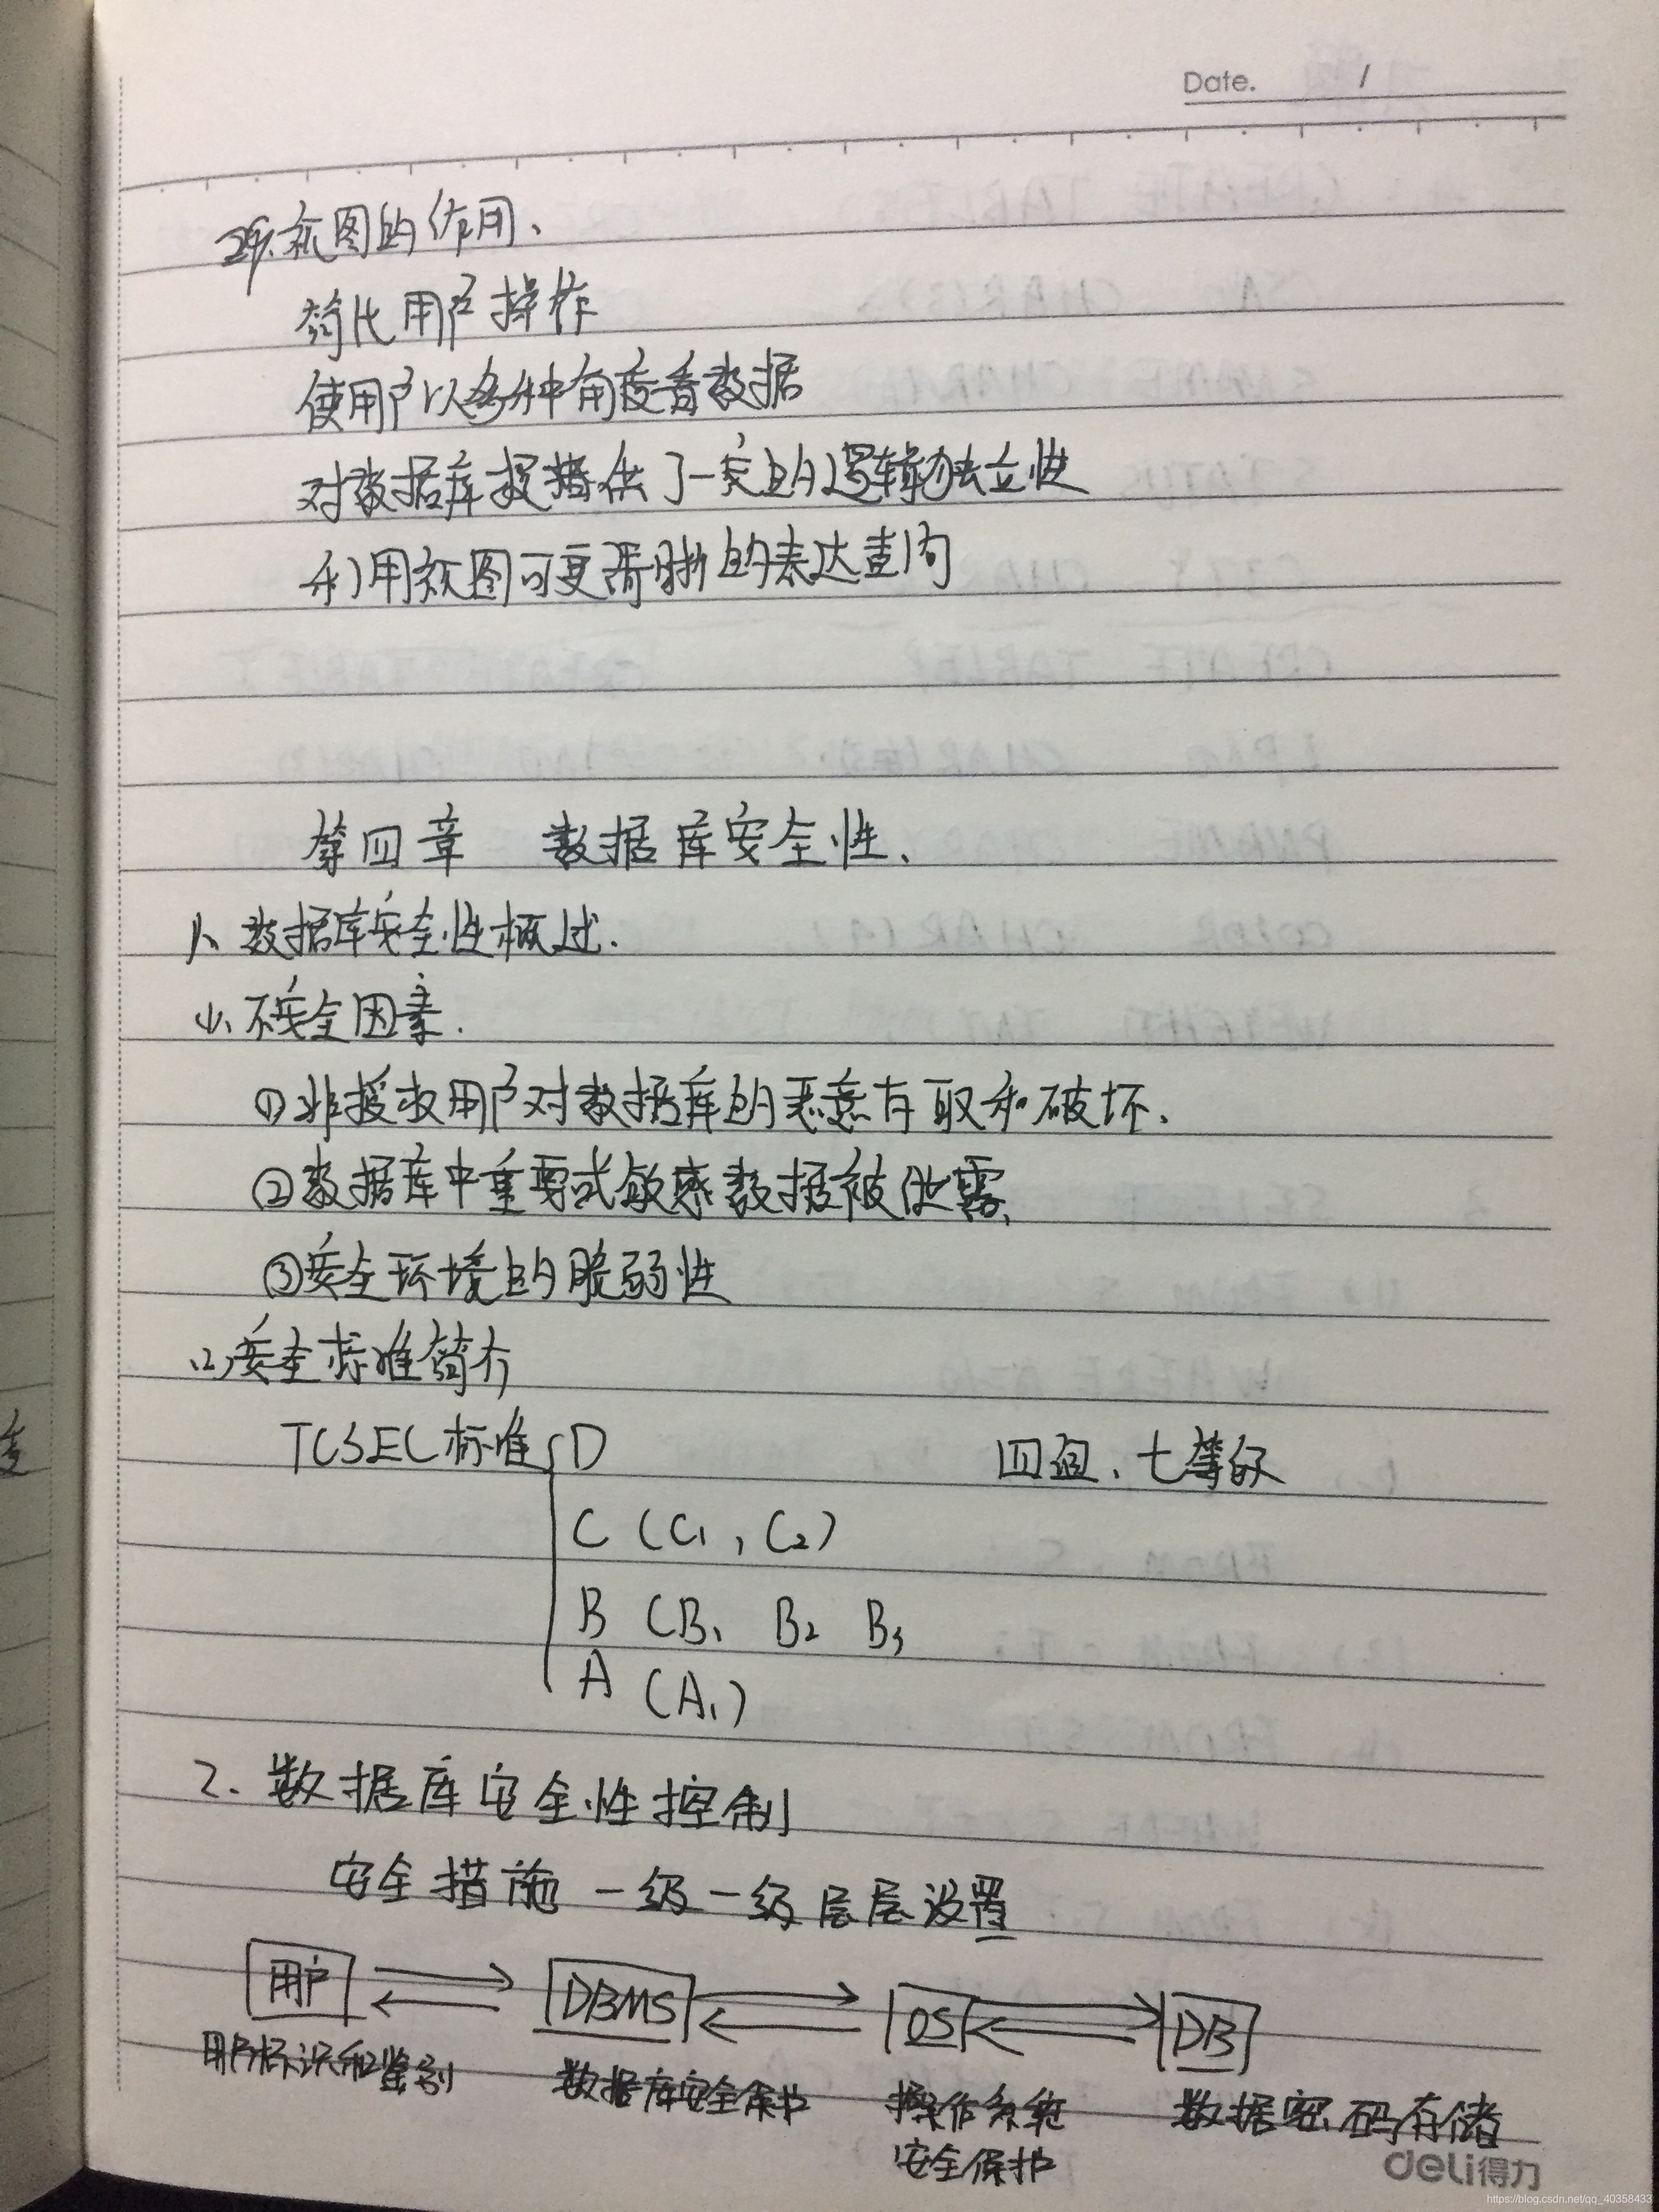 Date. /
29.视图的作用、
简化用户操作
使用户以多种角度看数据
对数据库提供了一定的逻辑独立性
利用视图可更清晰的表达查询
第四章 数据库安全性、
1、数据库安全性概述.
(1)、不安全因素.
①非授权用户对数据库的恶意存取和破坏、
②数据库中重要或敏感数据被泄露、
③安全环境的脆弱性
(2)安全标准简介
TCSEC标准{D 四组、七等级
C (C1, C2)
B (B1 B2 B3
A (A1)
2. 数据库安全性控制
安全措施 一级一级层层设置
用户 DBMS OS DB
用户标识和鉴别 数据库安全保护 操作系统 数据密码存储
安全保护
deli得力
https://blog.csdn.net/qq_40358433